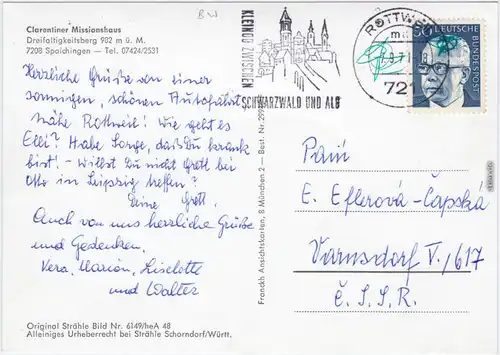 BW
Clarentiner Missionshaus
Dreifaltigkeitsberg 982 m ü. M.
7208 Spaichingen - Tel. 07424/2531
Herzliche Grüße von einer
sonnigen, schönen Autofahrt
nähe Rottweil! Wie geht es
Elli? Habe Sorge, daß Du krank
bist! - Willst Du nicht Grett bei
Otto in Leipzig treffen?
Deine Grett.
Auch von uns herzliche Grüße
und Gedenken.
Vera, Marion, Liselotte
und Walter
Original Strähle Bild Nr. 6149/heA 48
Alleiniges Urheberrecht bei Strähle Schorndorf/Württ.
Franckh Ansichtskarten, 8 München 2 — Best. Nr.
KLEINOD ZWISCHEN
SCHWARZWALD UND ALB
ROTTW
721
50
DEUTSCHE
BUNDESPOST
Paní
E. Eflerová-Čapská
Varnsdorf V./617
Č.S.S.R.